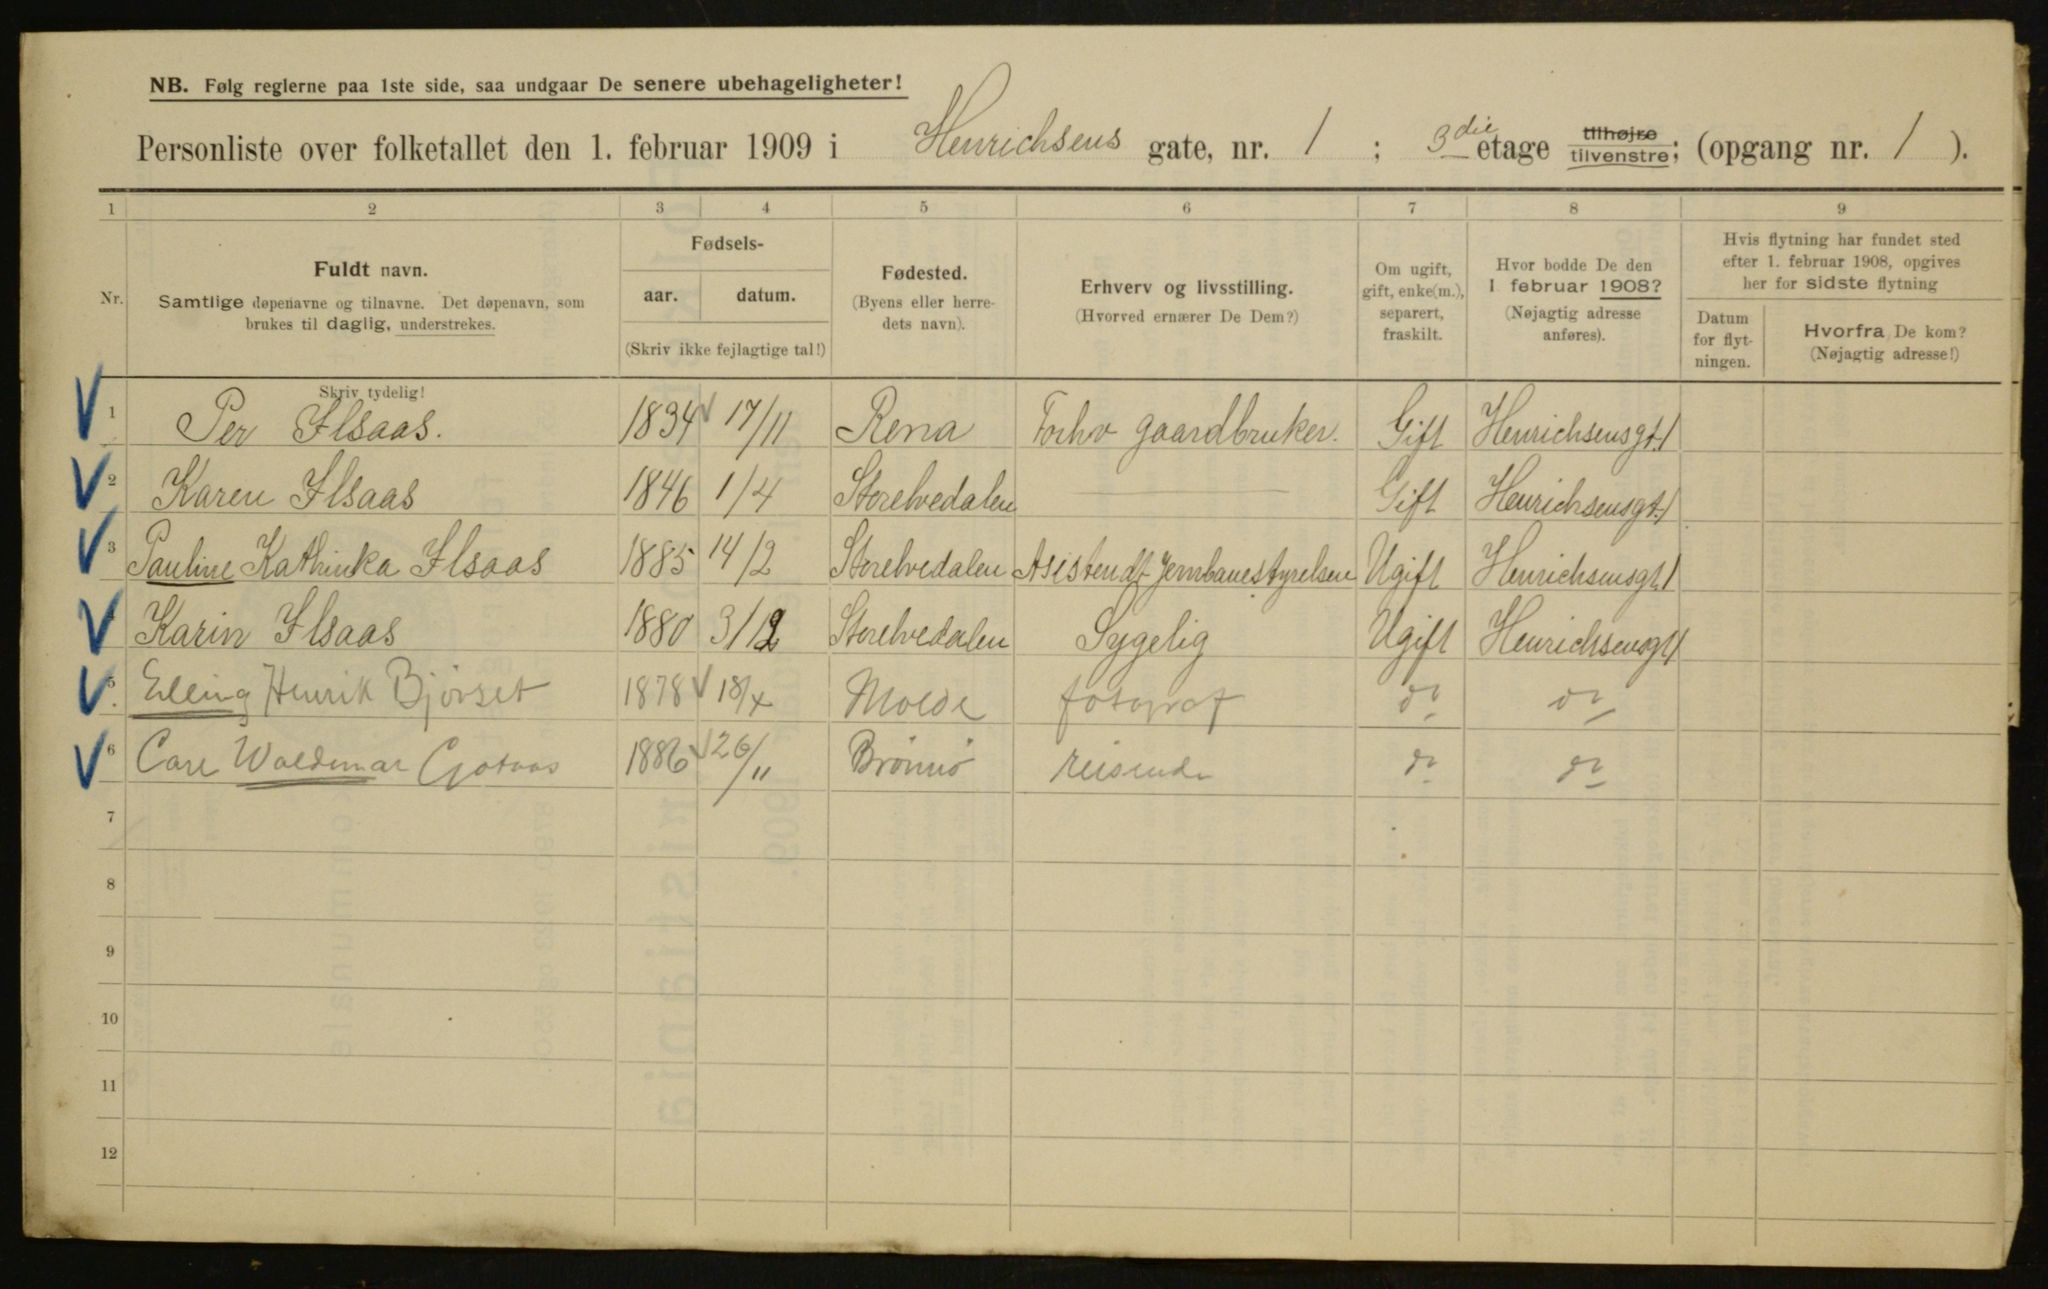 NB. Følg reglerne paa 1ste side, saa undgaar De senere ubehageligheter!
Personliste over folketallet den 1. februar 1909 i Henrichsens gate, nr. 1 ; 3die etage tilhøjre tilvenstre; (opgang nr. 1 ).
1 2 3 4 5 6 7 8 9
Nr.
Fuldt navn.
Samtlige døpenavne og tilnavne. Det døpenavn, som
brukes til daglig, understrekes.
Fødsels-
aar. datum.
(Skriv ikke fejlagtige tal!)
Fødested.
(Byens eller herre-
dets navn).
Erhverv og livsstilling.
(Hvorved ernærer De Dem?)
Om ugift,
gift, enke(m.),
separert,
fraskilt.
Hvor bodde De den
1 februar 1908?
(Nøjagtig adresse
anføres).
Hvis flytning har fundet sted
efter 1. februar 1908, opgives
her for sidste flytning
Datum
for flyt-
ningen.
Hvorfra De kom?
(Nøjagtig adresse!)
Skriv tydelig!
1 Per Ilsaas. 1834 17/11 Rena Forhv gaardbruker. Gift Henrichsensgt.1
2 Karen Ilsaas 1846 1/4 Storelvedalen — Gift Henrichsensgt.1
3 Pauline Kathinka Ilsaas 1885 14/2 Storelvedalen Asistendt Jernbanestyrelsen Ugift Henrichsensgt.1
Karin Ilsaas 1880 3/12 Storelvedalen Sygelig Ugift Henrichsensgt1
5 Elling Henrik Bjørset 1878 18/x Molde fotograf do do
6 Carl Waldemar 1886 26/11 Brønnø reisende do do
7
8
9
10
11
12